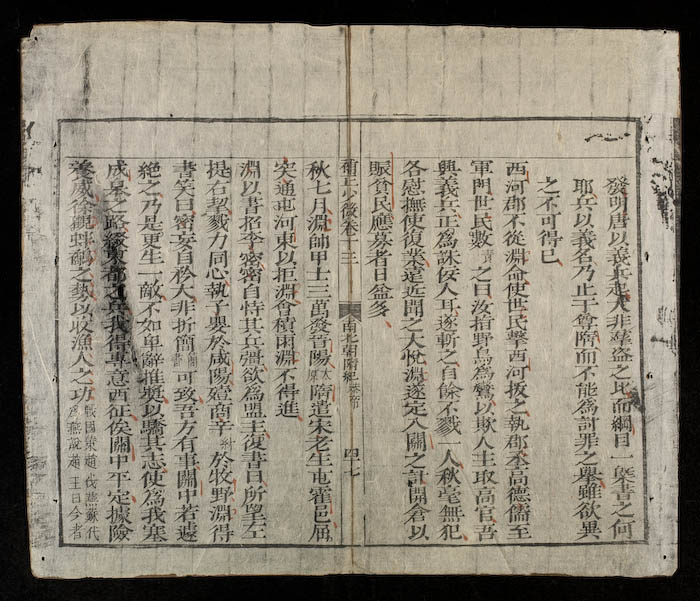 發明唐以義兵起大非羣盜之比而綱目一槩書之何
耶兵以義名乃止于尊隋而不能爲討罪之舉雖欲異
之不可得巳
西河郡不從淵命使世民擊西河拔之執郡丞高德儒至
軍門世民數責之曰汝指野鳥爲鸞以欺人主取高官吾
興義兵正爲誅佞人耳遂斬之自餘不戮一人秋毫無犯
各慰撫使復業遠近聞之大悅淵遂定入關之計開倉以
賑貧民應募者日益多
卷十三 南北朝隋紀 恭帝 四十七
秋七月淵帥甲士三萬發晉陽隋遣宋老生屯霍邑屈
突通屯河東以拒淵會積雨淵不得進
淵以書招李密密自恃其兵彊欲爲盟主復書曰所望左
提右挈戮力同心執子嬰於咸陽殪商辛紂於牧野淵得
書笑曰密妄自矜大非折簡可致吾方有事關中若遽
絶之乃是更生一敵不如卑辭推奬以驕其志使爲我塞
成皋之路綴東都之兵我得專意西征俟關中平定據險
養威徐觀蚌鷸之勢以收漁人之功戰國策趙伐燕蘇代
爲燕說趙王曰今者